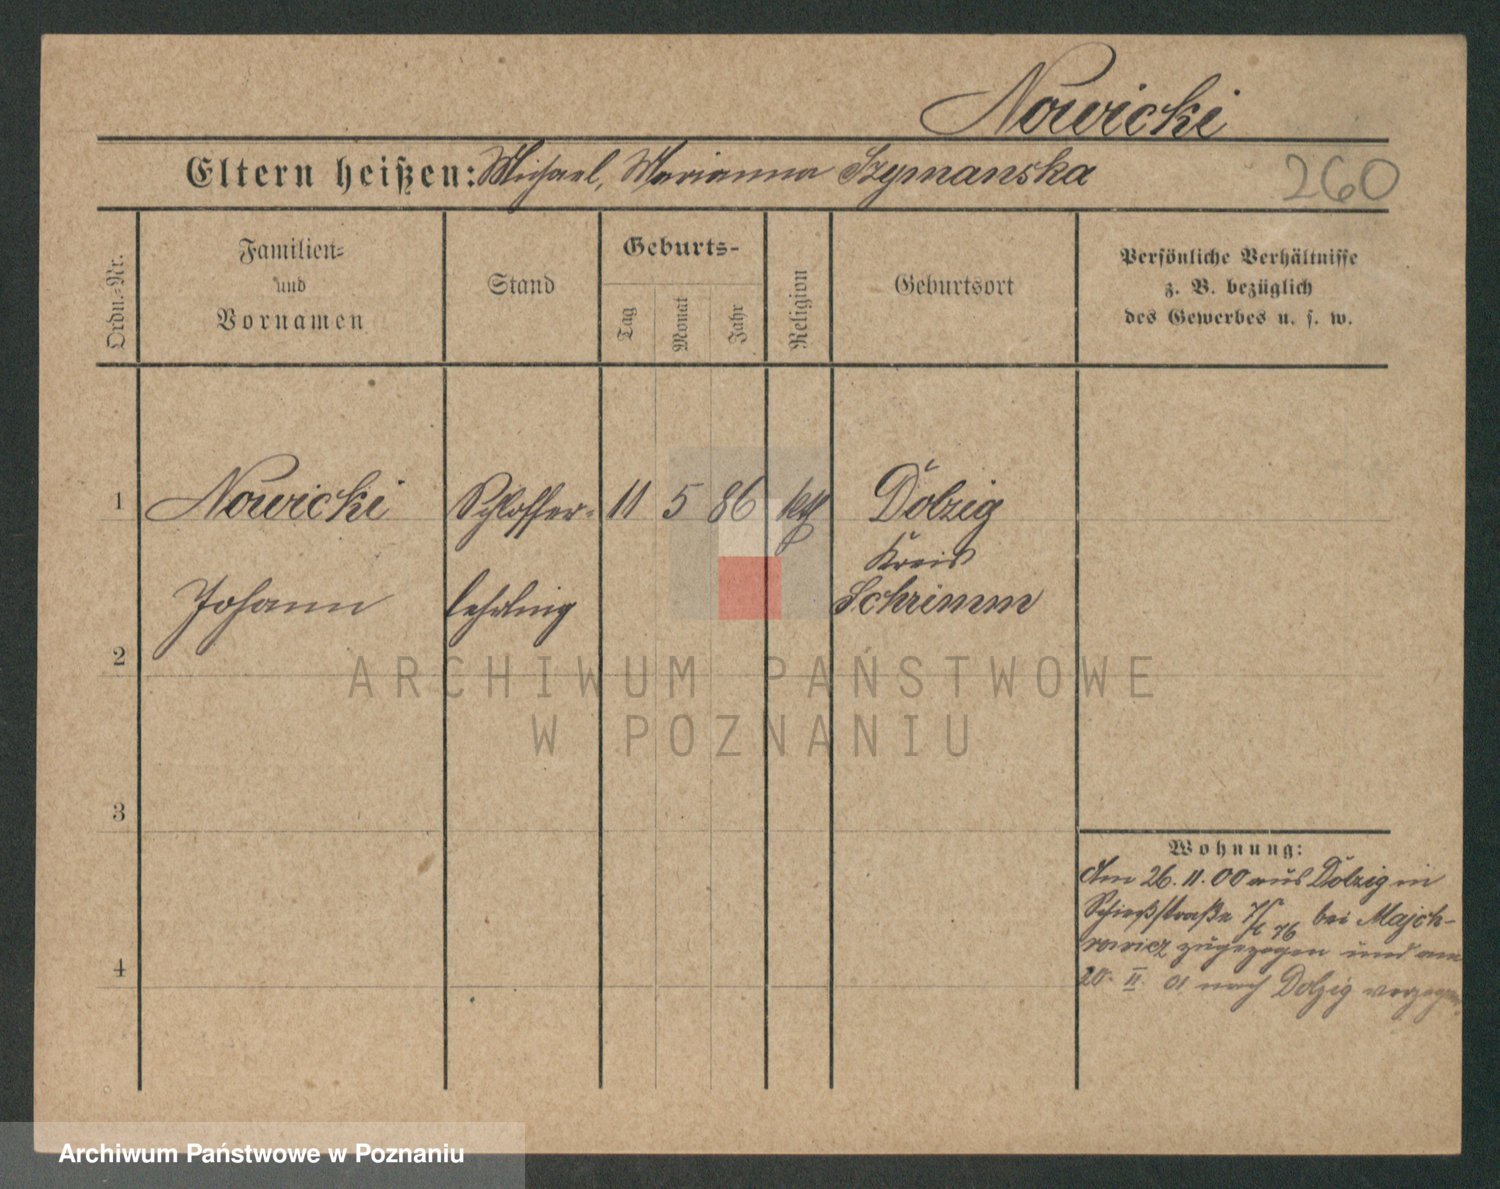 Nowicki
Eltern heißen: Michael, Marianna Szymanska
260
Ordn.=Nr.
Familien=
und
Vornamen
Stand
Geburts-
Tag
Monat
Jahr
Religion
Geburtsort
Persönliche Verhältnisse
z. B. bezüglich
des Gewerbes u. s. w.
1
Nowicki
Schlosser-
11
5
86
kth
Dolzig
Kreis
Johann
lehrling
Schrimm
2
ARCHIWUM PAŃSTWOWE
W POZNANIU
3
Wohnung:
Am 26. 11. 00 aus Dolzig in
Schießstraße bei Majch-
rowicz zugezogen und am
20. II 01 nach Dolzig verzogen.
4
Archiwum Państwowe w Poznaniu